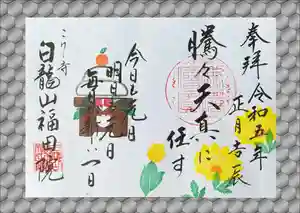 奉拝
令和五年
正月吉辰
騰々天真に
任す
今日も元旦
明日も元日
毎日が一日
こり寺
白龍山福田院